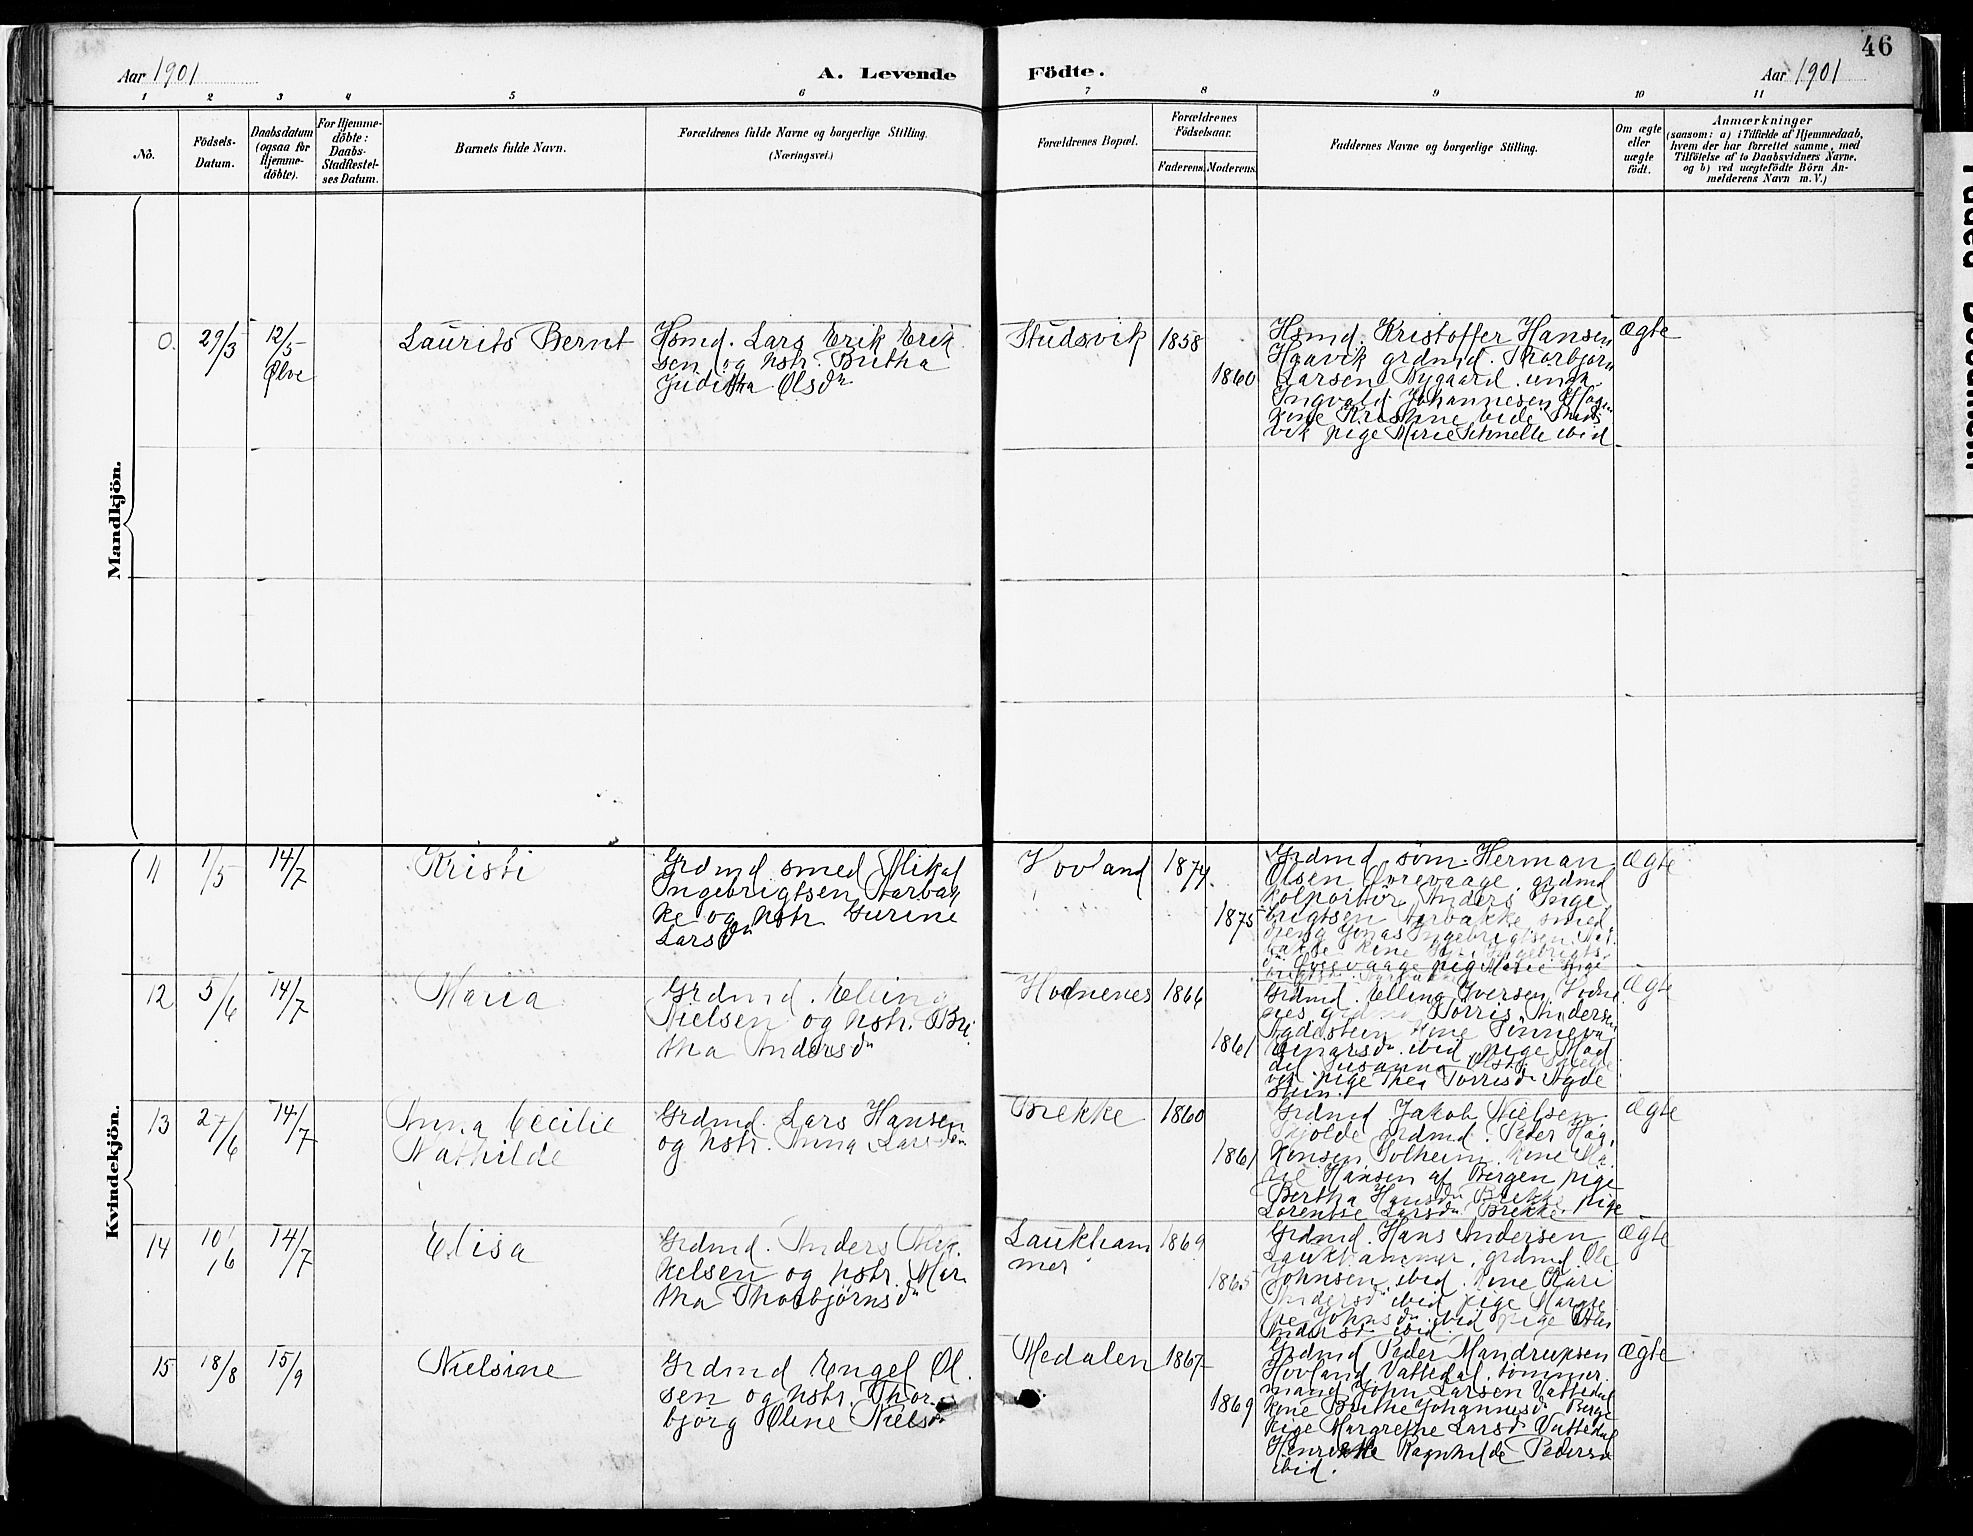 46
Aar 1901
A. Levende
Födte.
Aar 1901
1 2 3 4 5 6 7 8 9 10 11
No.
Födsels-
Datum.
Daabsdatum
(ogsaa for
Hjemme-
döbte).
For Hjemme-
döbte:
Daabs-
Stadfæstel-
ses Datum.
Barnets fulde Navn.
Forældrenes fulde Navne og borgerlige Stilling.
(Næringsvei.)
Forældrenes Bopæl.
Forældrenes
Födselsaar.
Faderens. Moderens.
Faddernes Navne og borgerlige Stilling.
Om ægte
eller
uægte
födt.
Anmærkninger
(saasom: a) i Tilfælde af Hjemmedaab,
hvem der har forrettet samme, med
Tilföielse af to Daabsvidners Navne.
og b) ved uægtefödte Börn An-
melderens Navn m. V.)
Mandkjön.
0. 29/3 12/5
Ølve
Laurits Bernt
Hsmd. Lars Erik Erik
sen og hstr. Britha
Juditha Olsdn
Studsvik
1858
1860
Hsmd. Kristoffer Hansen
Haavik grdmd. Thorbjørn
Larsen Nygaard. ungk.
Ingvald Johannesen
kone Kristine ibid
vik pige Marie ibid
ægte
Kvindekjön.
11 1/5 14/7
Kristi
Grdmd smed Mikal
Ingebrigtsen Aarbak
ke og hstr Gurine
Larsdn
Hovland
1874.
1875
Grdmd. søm. Herman
Olsen Øvrevaage, grdmd
kolportør Anders Inge
brigtsen Aarbakke smed
dreng Jonas Ingebrigtsen
kone
Øvrevaage pige Marie Inge
ægte
12 5/6 14/7
Maria
Grdmd. Elling
Nielsen og hstr. Bri
tha Andersdn
Hodnenes
1866
1861
Grdmd. Elling Iversen Hodne
nes Torris Andersen
kone
ibid pige Mad
Susanna
pige Thea Torrisdn Agde
stein.
ægte
13 27/6 14/7
Anna Cecilie
Mathilde
Grdmd. Lars Hansen
og hstr. Anna Larsdn
Brekke
1860
1861
Grdmd Jakob Nielsen
Skjolde grdmd. Peder Haa
konsen Solheim. kone
Hansen af Bergen pige
Bertha Hansdn Brekke pige
Lorentse Larsdn Brekke. pige
ægte
14 10/6 14/7
Elisa
Grdmd. Anders Mik
kelsen og hstr. Mar
tha Thorbjørnsdn
Laukham
mer
1869
1865
Grdmd. Hans Andersen
Laukhammer, grdmd. Ole
Johnsen ibid. kone Kari
Andersdn ibid pige Margre
the Johnsdn ibid pige
Andersd ibid.
ægte
15 18/8 15/9
Nielsine
Grdmd Engel Ol
sen og hstr. Thor
bjørg Oline Nielsdn
Medalen
1867
1869
Grdmd Peder Mandrupsen
Hovland Vattedal. tømmer
mand John Larsen Vattedal
kone Brithe Johannesd Berge
pige Margrethe Larsd Vattedal
Henrikke Ragnhilde Pedersd
ibid.
ægte